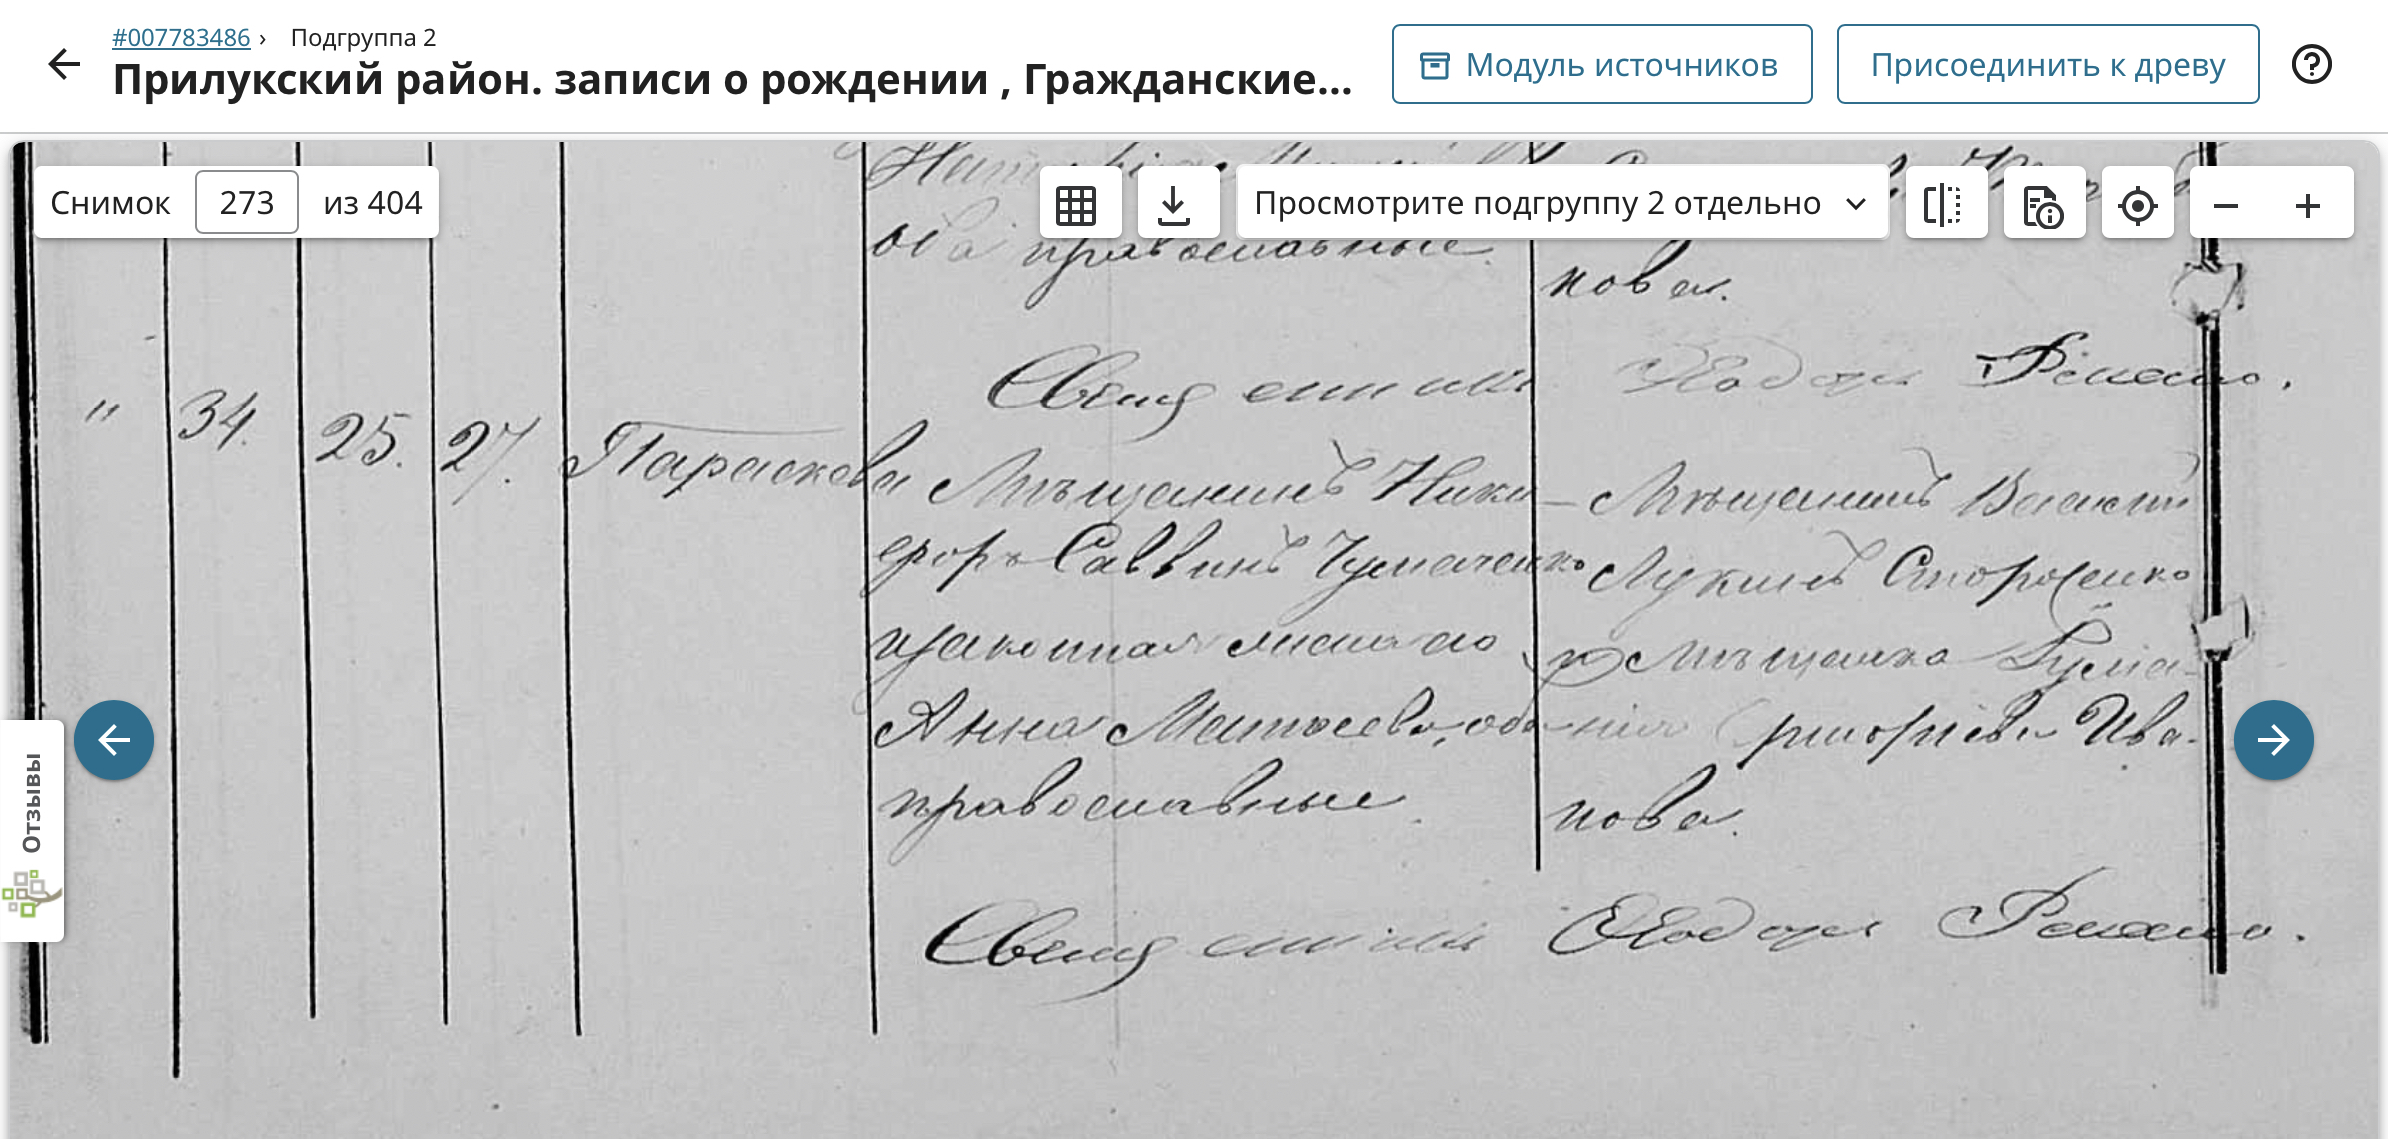 #007783486 › Подгруппа 2
Прилукский район. записи о рождении , Гражданские...
Модуль источников
Присоединить к древу
Снимок 273 из 404
Просмотрите подгруппу 2 отдельно
оба православные.
нова.
Священникъ Ѳеодоръ
" 34. 25. 27. Параскева
Мѣщанинъ Ники-
форъ Саввинъ Чумаченко
изаконная жена его
Анна Матѳеева, оба
православные.
Мѣщанинъ Василій
Лукинъ Стороженко
и Мѣщанка
Григоріева Ива-
нова.
Священникъ Ѳеодоръ
Отзывы